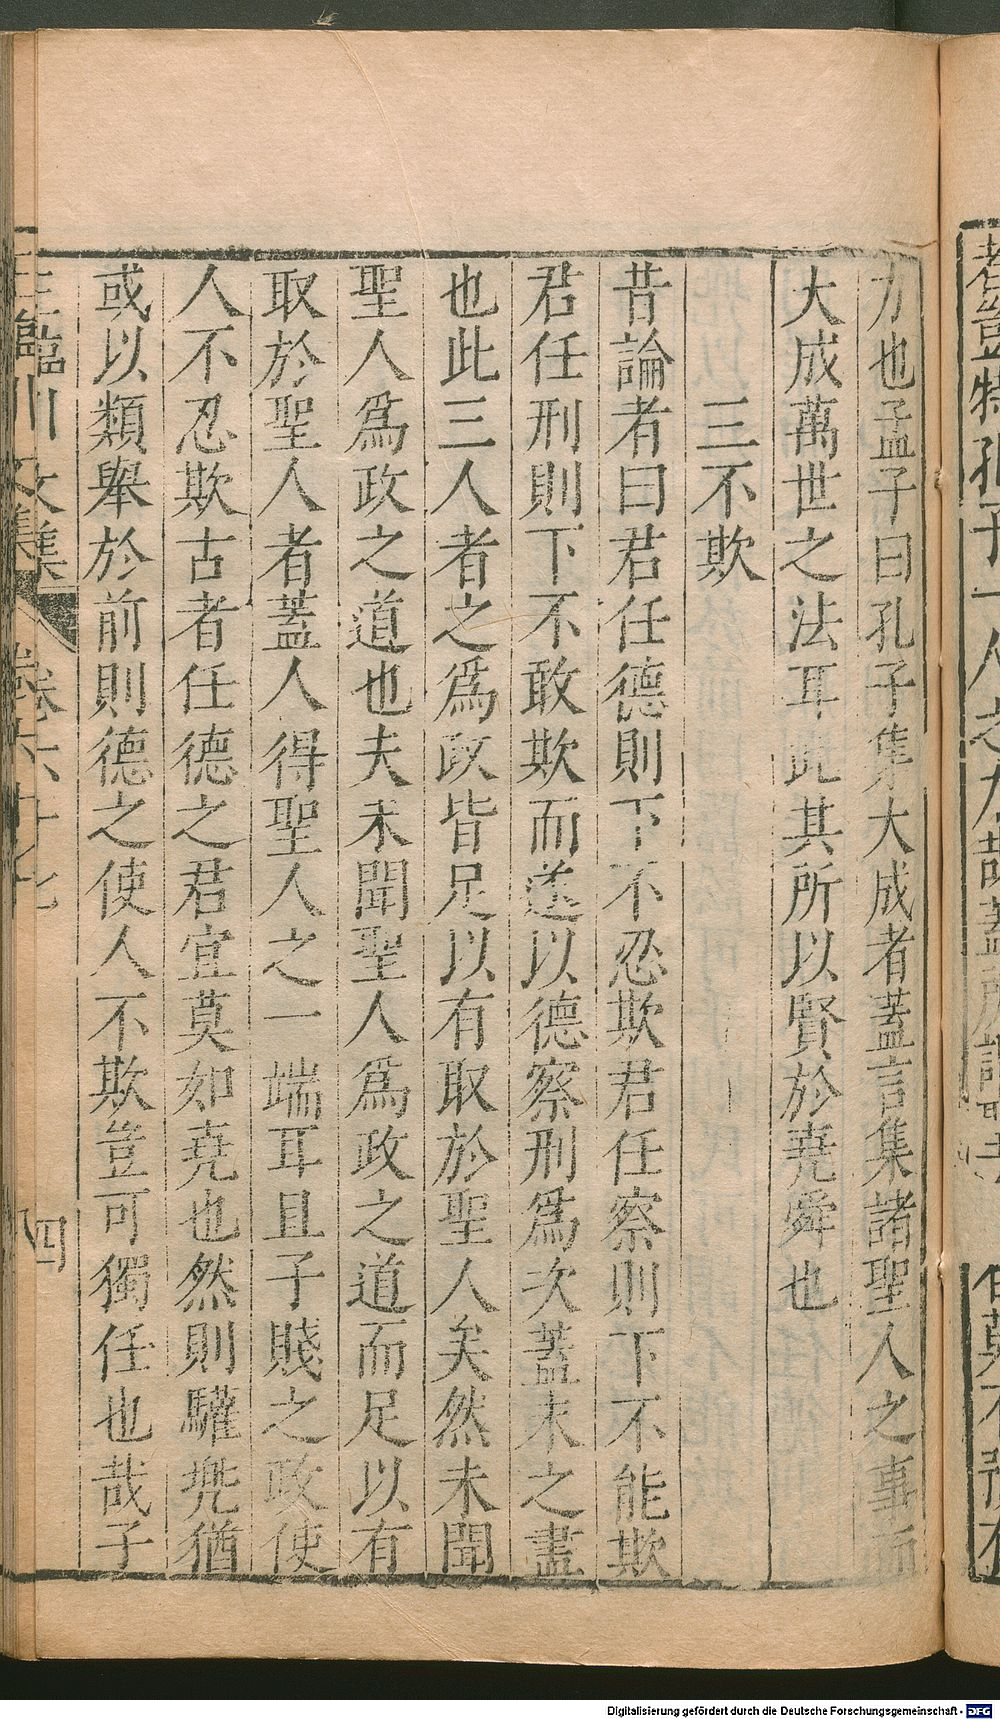 力也孟子曰孔子集大成者蓋言集諸聖人之事而
大成萬世之法耳此其所以賢於堯舜也
三不欺
昔論者曰君任德則下不忍欺君任察則下不能欺
君任刑則下不敢欺而遂以德察刑爲次蓋未之盡
也此三人者之爲政皆足以有取於聖人矣然未聞
聖人爲政之道也夫未聞聖人爲政之道而足以有
取於聖人者蓋人得聖人之一端耳且子賤之政使
人不忍欺古者任德之君宜莫如堯也然則驩兜猶
或以類舉於前則德之使人不欺豈可獨任也哉子
王臨川文集 卷六十七 四
Digitalisierung gefördert durch die Deutsche Forschungsgemeinschaft - DFG